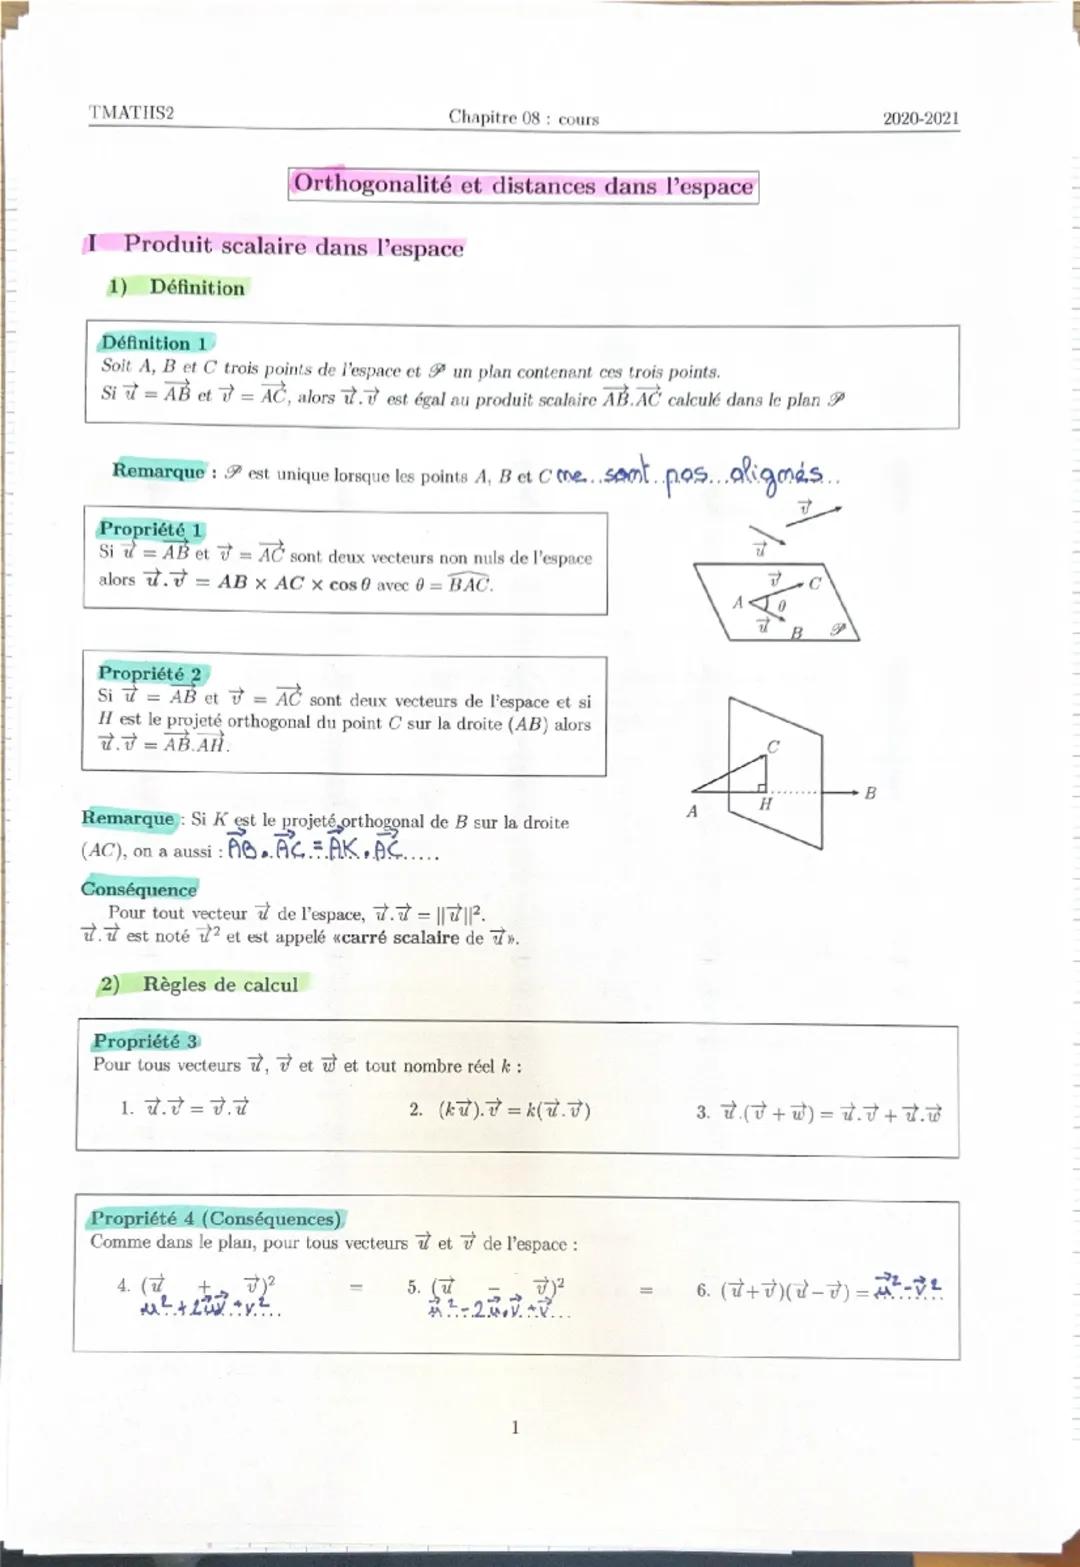 TMATHS2 Chapitre 08 : cours 2020-2021
Orthogonalité et distances dans l'espace
I Produit scalaire dans l'espace
1) Définition
Définition 1
Soit A, B et C trois points de l'espace et 𝒫 un plan contenant ces trois points.
Si u⃗ = AB⃗ et v⃗ = AC⃗, alors u⃗.v⃗ est égal au produit scalaire AB⃗.AC⃗ calculé dans le plan 𝒫
Remarque : 𝒫 est unique lorsque les points A, B et C ne..sont..pas...alignés...
Propriété 1
Si u⃗ = AB⃗ et v⃗ = AC⃗ sont deux vecteurs non nuls de l'espace
alors u⃗.v⃗ = AB × AC × cos θ avec θ = B͡AC.
v⃗
u⃗
v⃗ C
A θ
u⃗ B 𝒫
Propriété 2
Si u⃗ = AB⃗ et v⃗ = AC⃗ sont deux vecteurs de l'espace et si
H est le projeté orthogonal du point C sur la droite (AB) alors
u⃗.v⃗ = AB⃗.AH⃗.
C
A H B
Remarque : Si K est le projeté orthogonal de B sur la droite
(AC), on a aussi : AB⃗.AC⃗ = AK⃗.AC⃗.....
Conséquence
Pour tout vecteur u⃗ de l'espace, u⃗.u⃗ = ||u⃗||².
u⃗.u⃗ est noté u⃗² et est appelé «carré scalaire de u⃗».
2) Règles de calcul
Propriété 3
Pour tous vecteurs u⃗, v⃗ et w⃗ et tout nombre réel k :
1. u⃗.v⃗ = v⃗.u⃗ 2. (ku⃗).v⃗ = k(u⃗.v⃗) 3. u⃗.(v⃗ + w⃗) = u⃗.v⃗ + u⃗.w⃗
Propriété 4 (Conséquences)
Comme dans le plan, pour tous vecteurs u⃗ et v⃗ de l'espace :
4. (u⃗ + v⃗)² = 5. (u⃗ - v⃗)² = 6. (u⃗+v⃗)(u⃗-v⃗) = u⃗²-v⃗²
u⃗²+2u⃗v⃗+v⃗².. u⃗²-2u⃗.v⃗+v⃗...
1